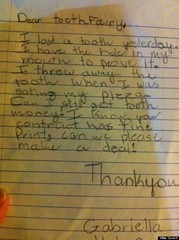 Dear toothFairy,
I lost a tooth yesterday.
I have the hole in my
mouth to prove it.
I throw away the
tooth when I was
eating my pizza.
Can I still get tooth
money? I know your
contract has fine
print, can we please
make a deal!
Thankyou
Gabriella